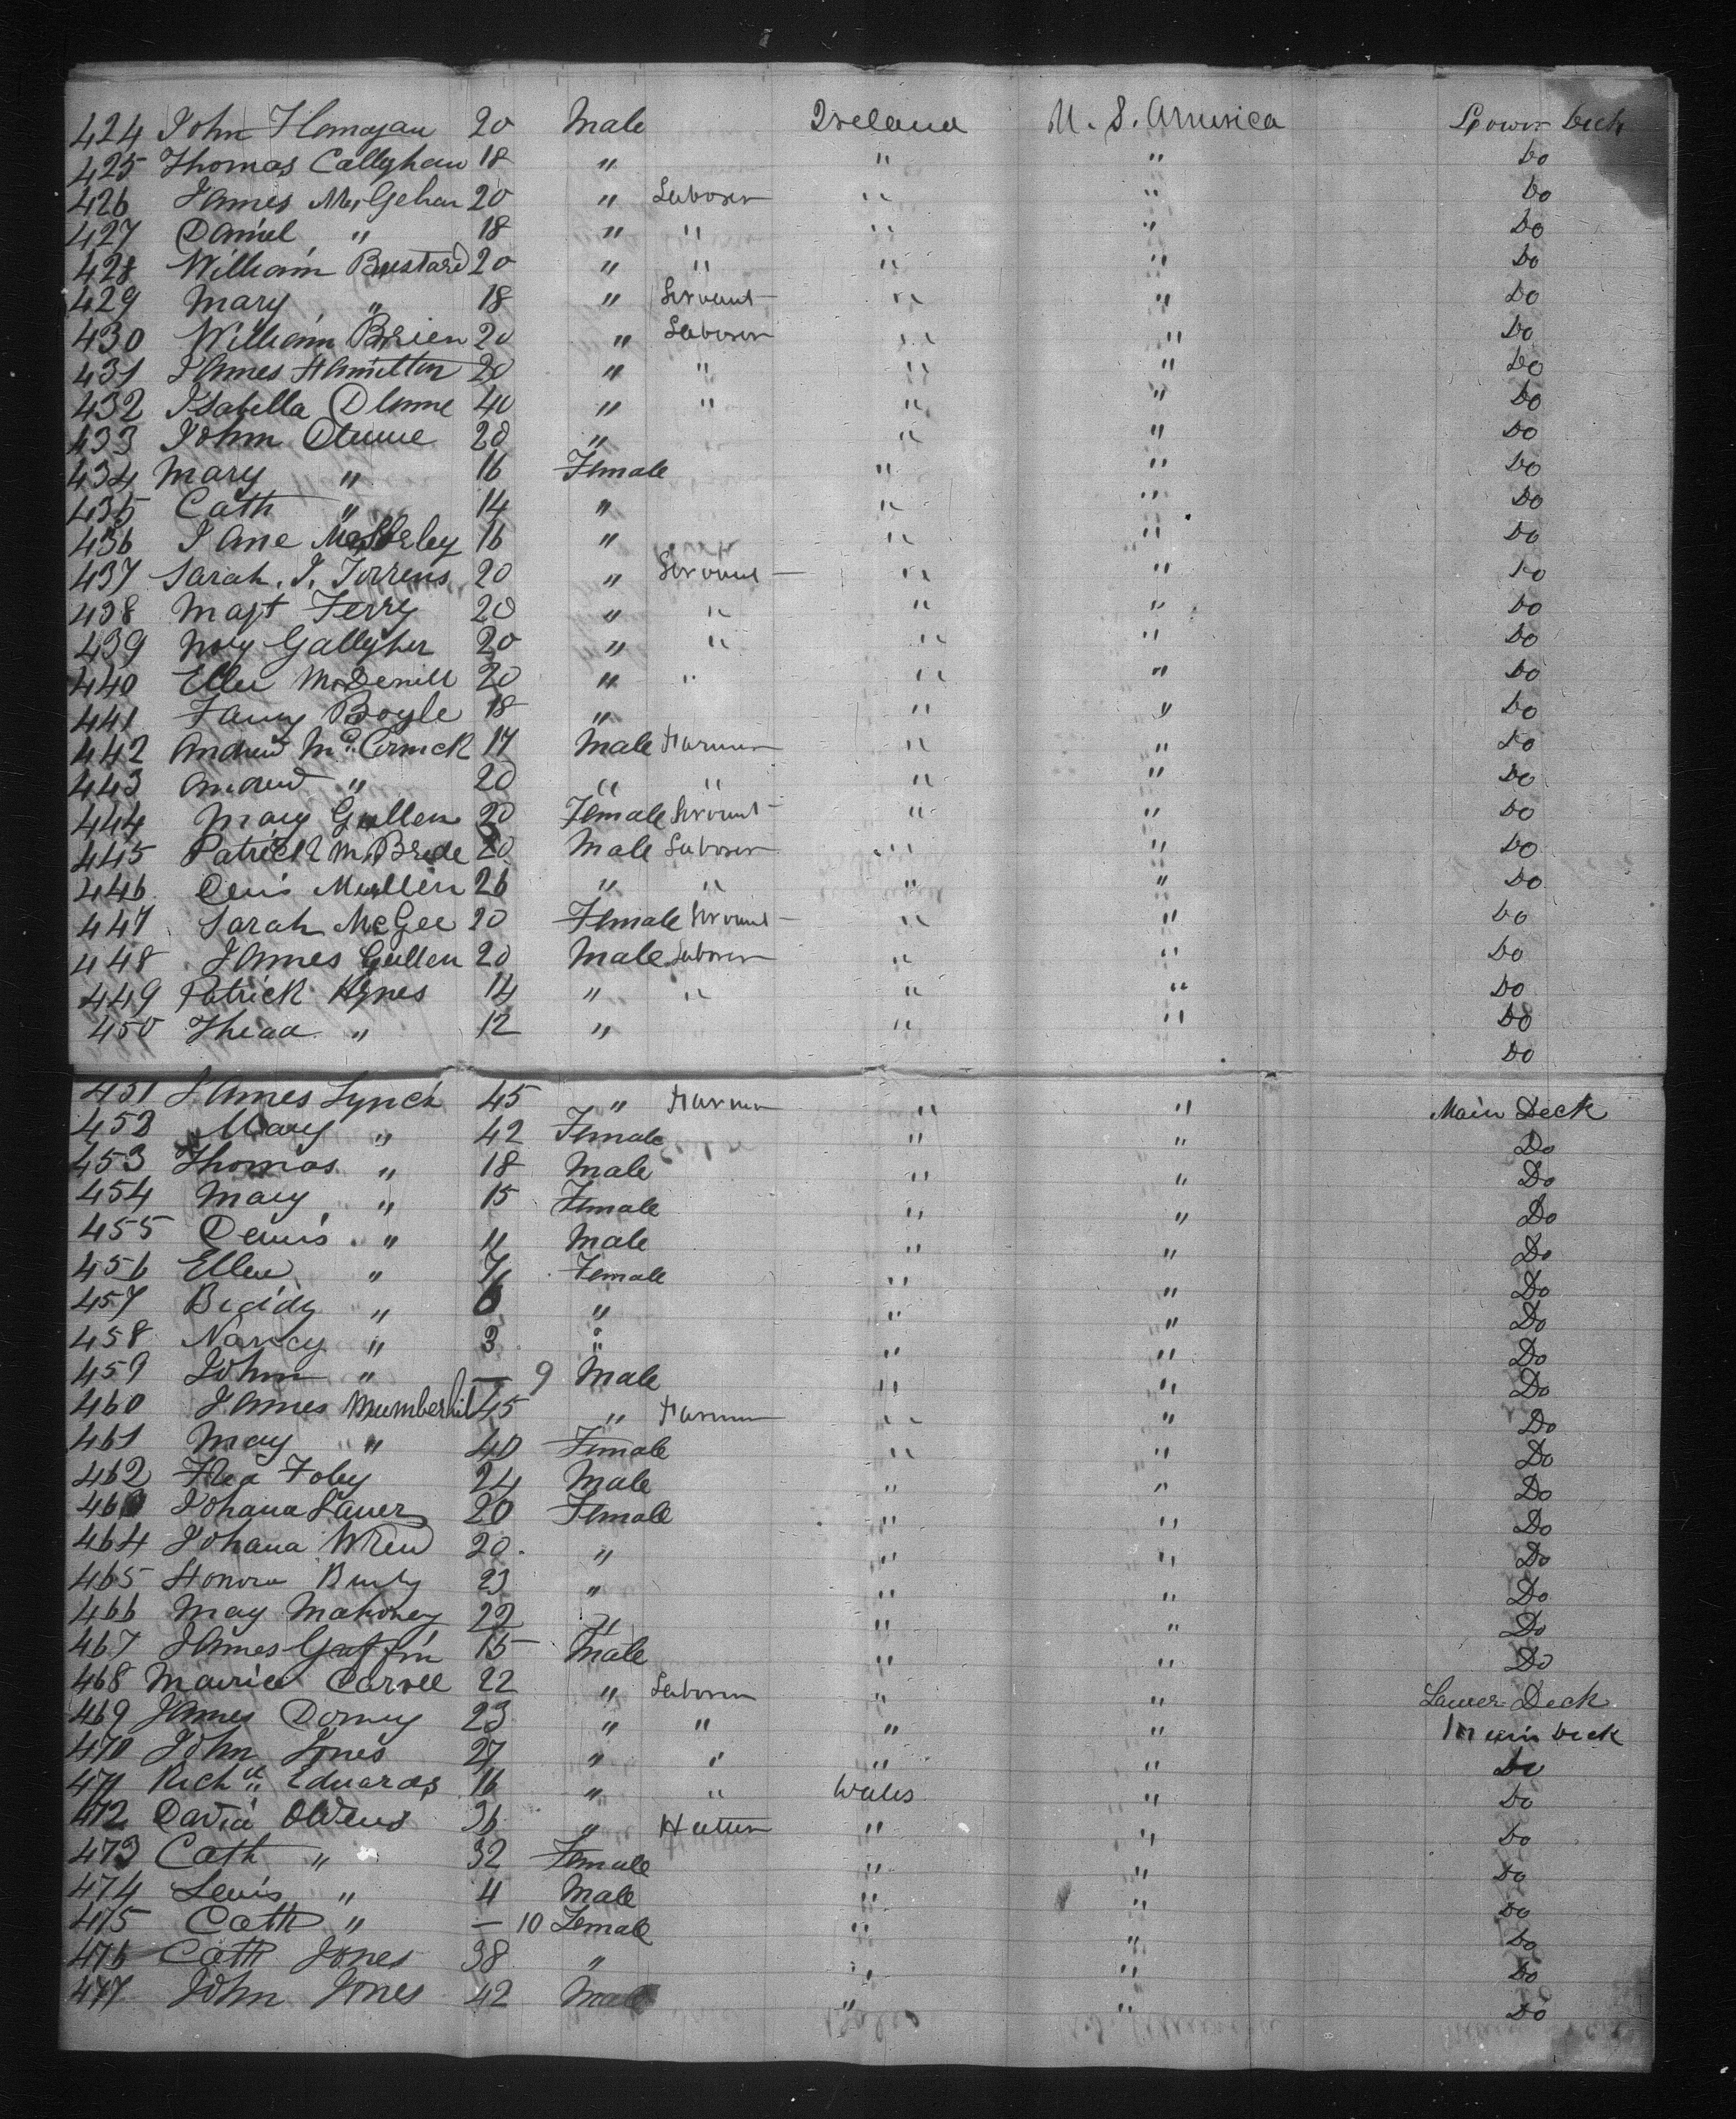 424 John Flanagan 20 Male Ireland U. S. America Lower Deck
425 Thomas Callyhan 18 " " " Do
426 James McGehan 20 " Laborer " " Do
427 Daniel " 18 " " " " Do
428 William Bustard 20 " " " " Do
429 Mary " 18 " Servant " " Do
430 William Brien 20 " Laborer " " Do
431 James Hamilton 20 " " " " Do
432 Isabella 40 " " " " Do
433 John 20 " " " Do
434 Mary " 16 Female " " Do
435 Cath " 14 " " " Do
436 Jane 16 " " " Do
437 Sarah. J. Torrens 20 " Servant " " Do
438 Magt Ferry 20 " " " " Do
439 Mary Gallyher 20 " " " " Do
440 Ellen 20 " " " " Do
441 Fanny Boyle 18 " " " Do
442 Andrew McCormick 17 Male Farmer " " Do
443 Andrew " 20 " " " " Do
444 Mary Gullen 20 Female Servant " " Do
445 Patrick McBride 20 Male Laborer " " Do
446 Denis Mullen 26 " " " " Do
447 Sarah McGee 20 Female Servant " " Do
448 James Gullen 20 Male Laborer " " Do
449 Patrick Hynes 14 " " " " Do
450 " 12 " " " Do
Do
451 James Lynch 45 " Farmer " " Main Deck
452 Mary " 42 Female " " Do
453 Thomas " 18 Male " " Do
454 Mary " 15 Female " " Do
455 Denis " 11 Male " " Do
456 Ellen " 7 Female " " Do
457 Biddy " 6 " " " Do
458 Nancy " 3 " " " Do
459 John " — 9 Male " " Do
460 James 45 " Farmer " " Do
461 May " 40 Female " " Do
462 Foley 24 Male " " Do
463 Johana 20 Female " " Do
464 Johana Wren 20 " " " Do
465 Honora 23 " " " Do
466 May Mahoney 22 " " " Do
467 James Griffin 15 Male " " Do
468 Maurice Carvell 22 " Laborer " " Lower Deck
469 James 23 " " " " Main Deck
470 John Jones 27 " " " " Do
471 Richd Edwards 16 " " Wales " Do
472 David Owens 36 " Hatter " " Do
473 Cath " 32 Female " " Do
474 Lewis " 4 Male " " Do
475 Cath " — 10 Female " " Do
476 Cath Jones 38 " " " Do
477 John Jones 42 Male " " Do